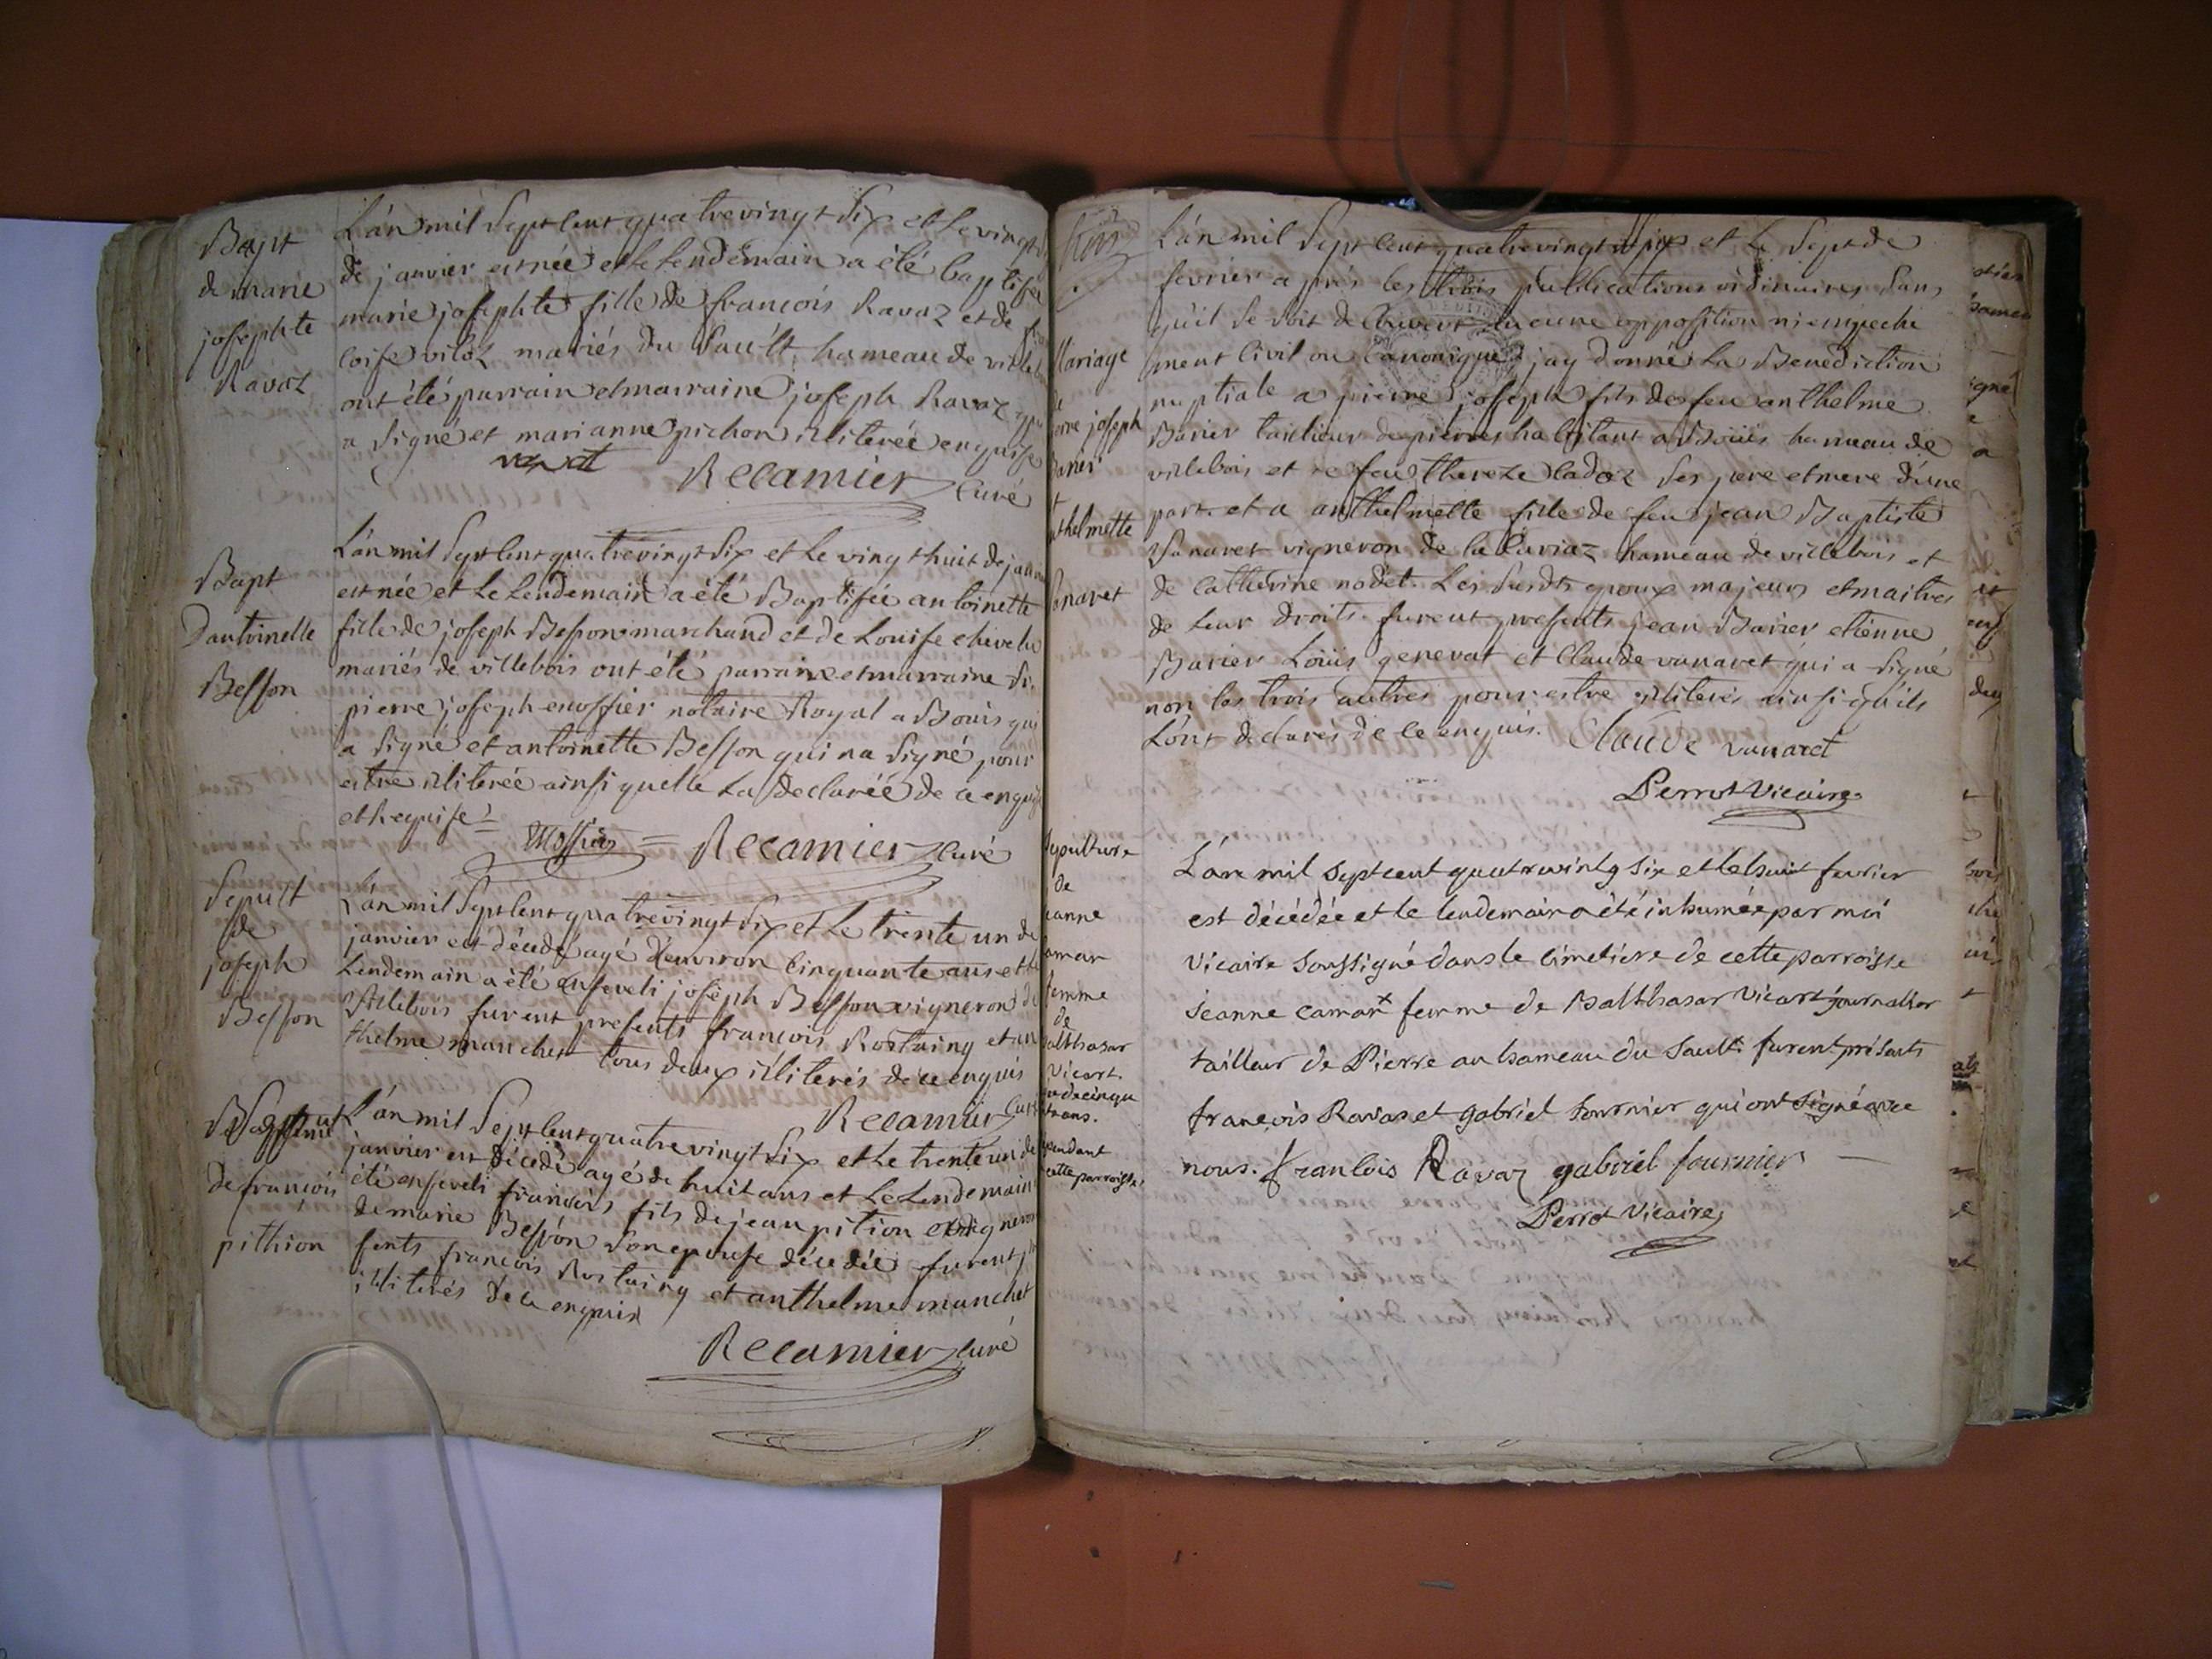 Bapt
de marie
josephte
Ravaz
L'an mil sept cent quatrevingt six et le vingt
de janvier est née et le lendemain a été baptisée
marie josephte fille de françois Ravaz et de
loise viloz mariés du Sault hameau de
ont été parrain et marraine joseph Ravaz qui
a signé et marianne pichon illiterée enquise
ravat
Recamier curé
Bapt
Dantoinette
Besson
L'an mil sept cent quatrevingt six et le vingt huit de
est née et le lendemain a été Baptisée antoinette
fille de joseph Besson marchand et de Louise
mariés de villebois ont été parrain et marraine Sr
pierre joseph notaire Royal a Bouis qui
a signé et antoinette Besson qui na signé pour
estre illiterée ainsi quelle la declarée de ce
et requise
Recamier curé
Sepult
de
joseph
Besson
L'an mil sept cent quatrevingt six et le trente un de
janvier est décédé agé denviron cinquante ans et le
lendemain a été enseveli joseph Besson vigneron de
villebois furent presents françois Rostaing et an
thelme manchet tous deux illiterés de ce enquis
Recamier curé
Sepult
de françois
pithion
L'an mil sept cent quatrevingt six et le trente un de
janvier est décédé agé de huit ans et le lendemain
été enseveli françois fils de jean pition vigneron
de marie Besson son epouse décedée furent
sents françois Rostaing et anthelme manchet
illiterés de ce enquis
Recamier curé
Mariage
joseph
Barier
L'an mil sept cent quatrevingt six et le sept de
fevrier aprés les trois publications ordinaires sans
qu'il se soit decouvert aucune opposition ni empeche
ment civil ou canonique jay donné la Benediction
nuptiale a pierre joseph fils de feu anthelme
Barier tailleur de pierres habitant a Boüis hameau de
villebois et de feu thereze cadoz ses pere et mere d'une
part et a anthelmette fille de feu jean Baptiste
Vanaret vigneron de la hameau de villebois et
de catherine nodet. Les susdts epoux majeurs et maitres
de leur droits furent presents jean Barier etienne
Barier Loüis genevat et Claude vanaret qui a signé
non les trois autres pour estre illiterés ainsi qu'ils
l'ont declarés de ce enquis. Claude vanaret
Perrot Vicaire
Sepulture
de
jeanne
camar
femme
de
balthasar
Vicart.
cette parroisse.
L'an mil sept cent quatrevingt six et le huit fevrier
est décédée et le lendemain a été inhumée par moi
vicaire soussigné dans le cimetiere de cette parroisse
jeanne camar femme de Balthasar Vicart journalier
tailleur de Pierre au hameau du Sault furent présents
françois Ravaz et gabriel fournier qui ont signé avec
nous. francois Ravaz gabriel fournier
Perrot Vicaire